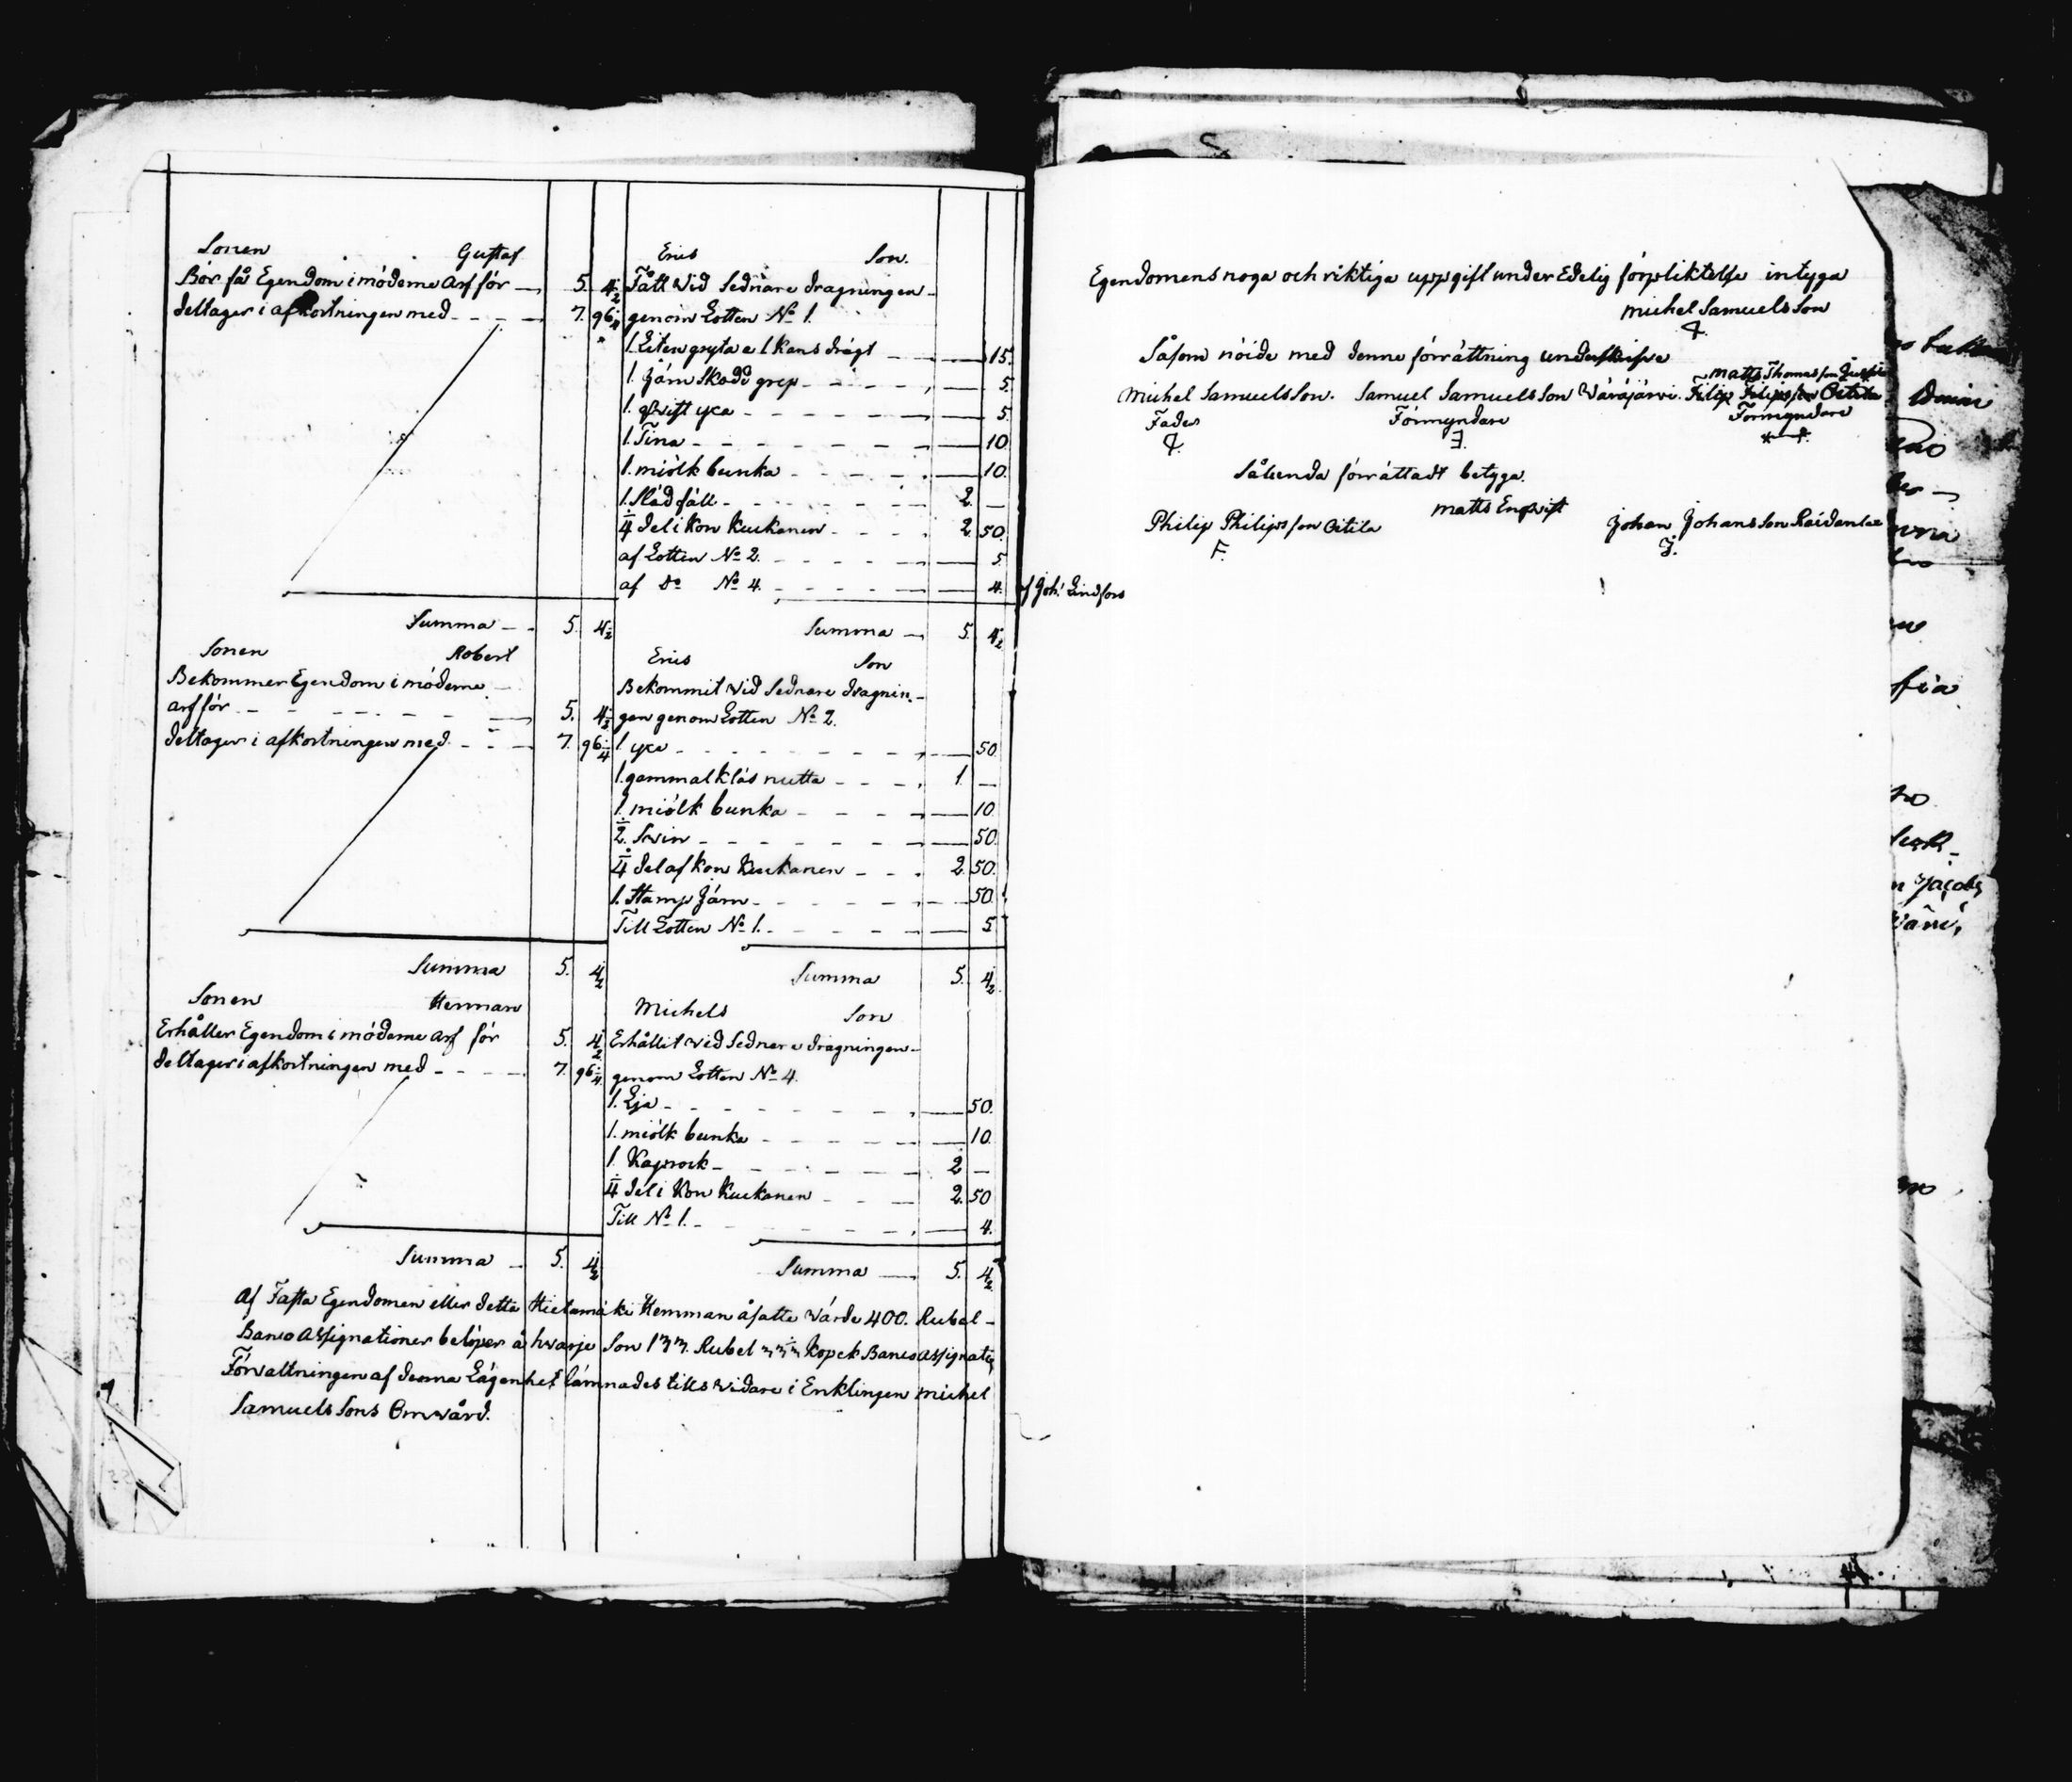 Sonen Gustaf
Bör få Egendom i möderne Arf för 5. 4½
deltager i afkortningen med 7. 96¼
Summa 5. 4½
Sonen Robert
Bekommer Egendom i möderne
arf för 5. 4½
deltager i afkortningen med 7. 96¼
Summa 5. 4½
Sonen Herman
Erhåller Egendom i möderne Arf för 5. 4½
deltager i afkortningen med 7. 96¼
Summa 5. 4½
Erics Son.
Fått vid Sednare dragningen
genom Lotten No 1.
1. Liten gryta a 1 kans drägt 15.
1. Järn Skodd grep 5.
1. qvist yxa 5.
1. Tina 10.
1. miölk bunka 10.
1. Slädfäll 2. —
¼ del i kon Kuckanen 2. 50.
af Lotten No 2. 5.
af Do No 4. 4.
af Joh: Lindfors
Summa 5. 4½
Erics Son
Bekommit vid Sednare dragnin-
gen genom Lotten No 2.
1. yxa 50
1. gammal Klås nutta 1. —
1. miölk bunka 10.
½ Svin 50.
¼ del af kon Kuckanen 2. 50.
1. Stamp Järn 50.
Till Lotten No 1. 5
Summa 5. 4½
Michels Son
Erhållit vid Sednare dragningen
genom Lotten No 4.
1. Lja 50.
1. miölk bunka 10.
1. Kaprock 2. —
¼ del i Kon Kuckanen 2. 50
Till No 1. 4.
Summa 5. 4½
Af Fasta Egendomen eller detta Hietamäki Hemman åsatte Värde 400. Rubel
Banco Assignationer belöper å hvarje Son 133. Rubel 33⅓ Kopek Banco Assignat:
Förvaltningen af denna Lägenhet lämnades tills vidare i Enklingen Michel
Samuels Sons Omvård.
Egendomens noga och riktiga uppgift under Edelig förpliktelse intyga
Michel Samuels Son
Såsom nöide med denne förrättning underskrifve
Matts Thomasson
Michel Samuels Son. Samuel Samuels Son Wäräjärvi. Filip Filipsson Oitila
Fader Förmyndare Förmyndare
Således förrättadt betyga.
Matts Enqvist
Philip Philipsson Oitila Johan Johansson
F. J.